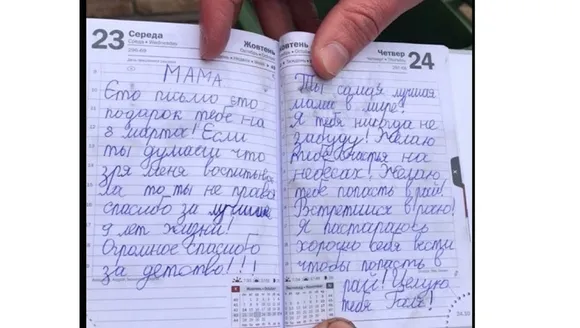 23 Середа
Среда • Wednesday
296-69
Жовтень
МАМА
Ето письмо ето
подарок тебе на
8 марта! Если
ты думаеш что
зря меня воспитывала
то ты не права
спасибо за лучшие
9 лет жизни!
Огромное спасибо
за детство!!!
Жовтень
Четвер 24
Четверг • Thursday
297-68
Ты самая лучшая
мама в мире!
Я тебя никогда не
забуду! Желаю
тебе счастья на
небесах! Желаю
тебе попасть в рай!
Встретимся в раю!
Я постараюсь
хорошо себя вести
чтобы попасть в
рай! Целую
тебя Галя!